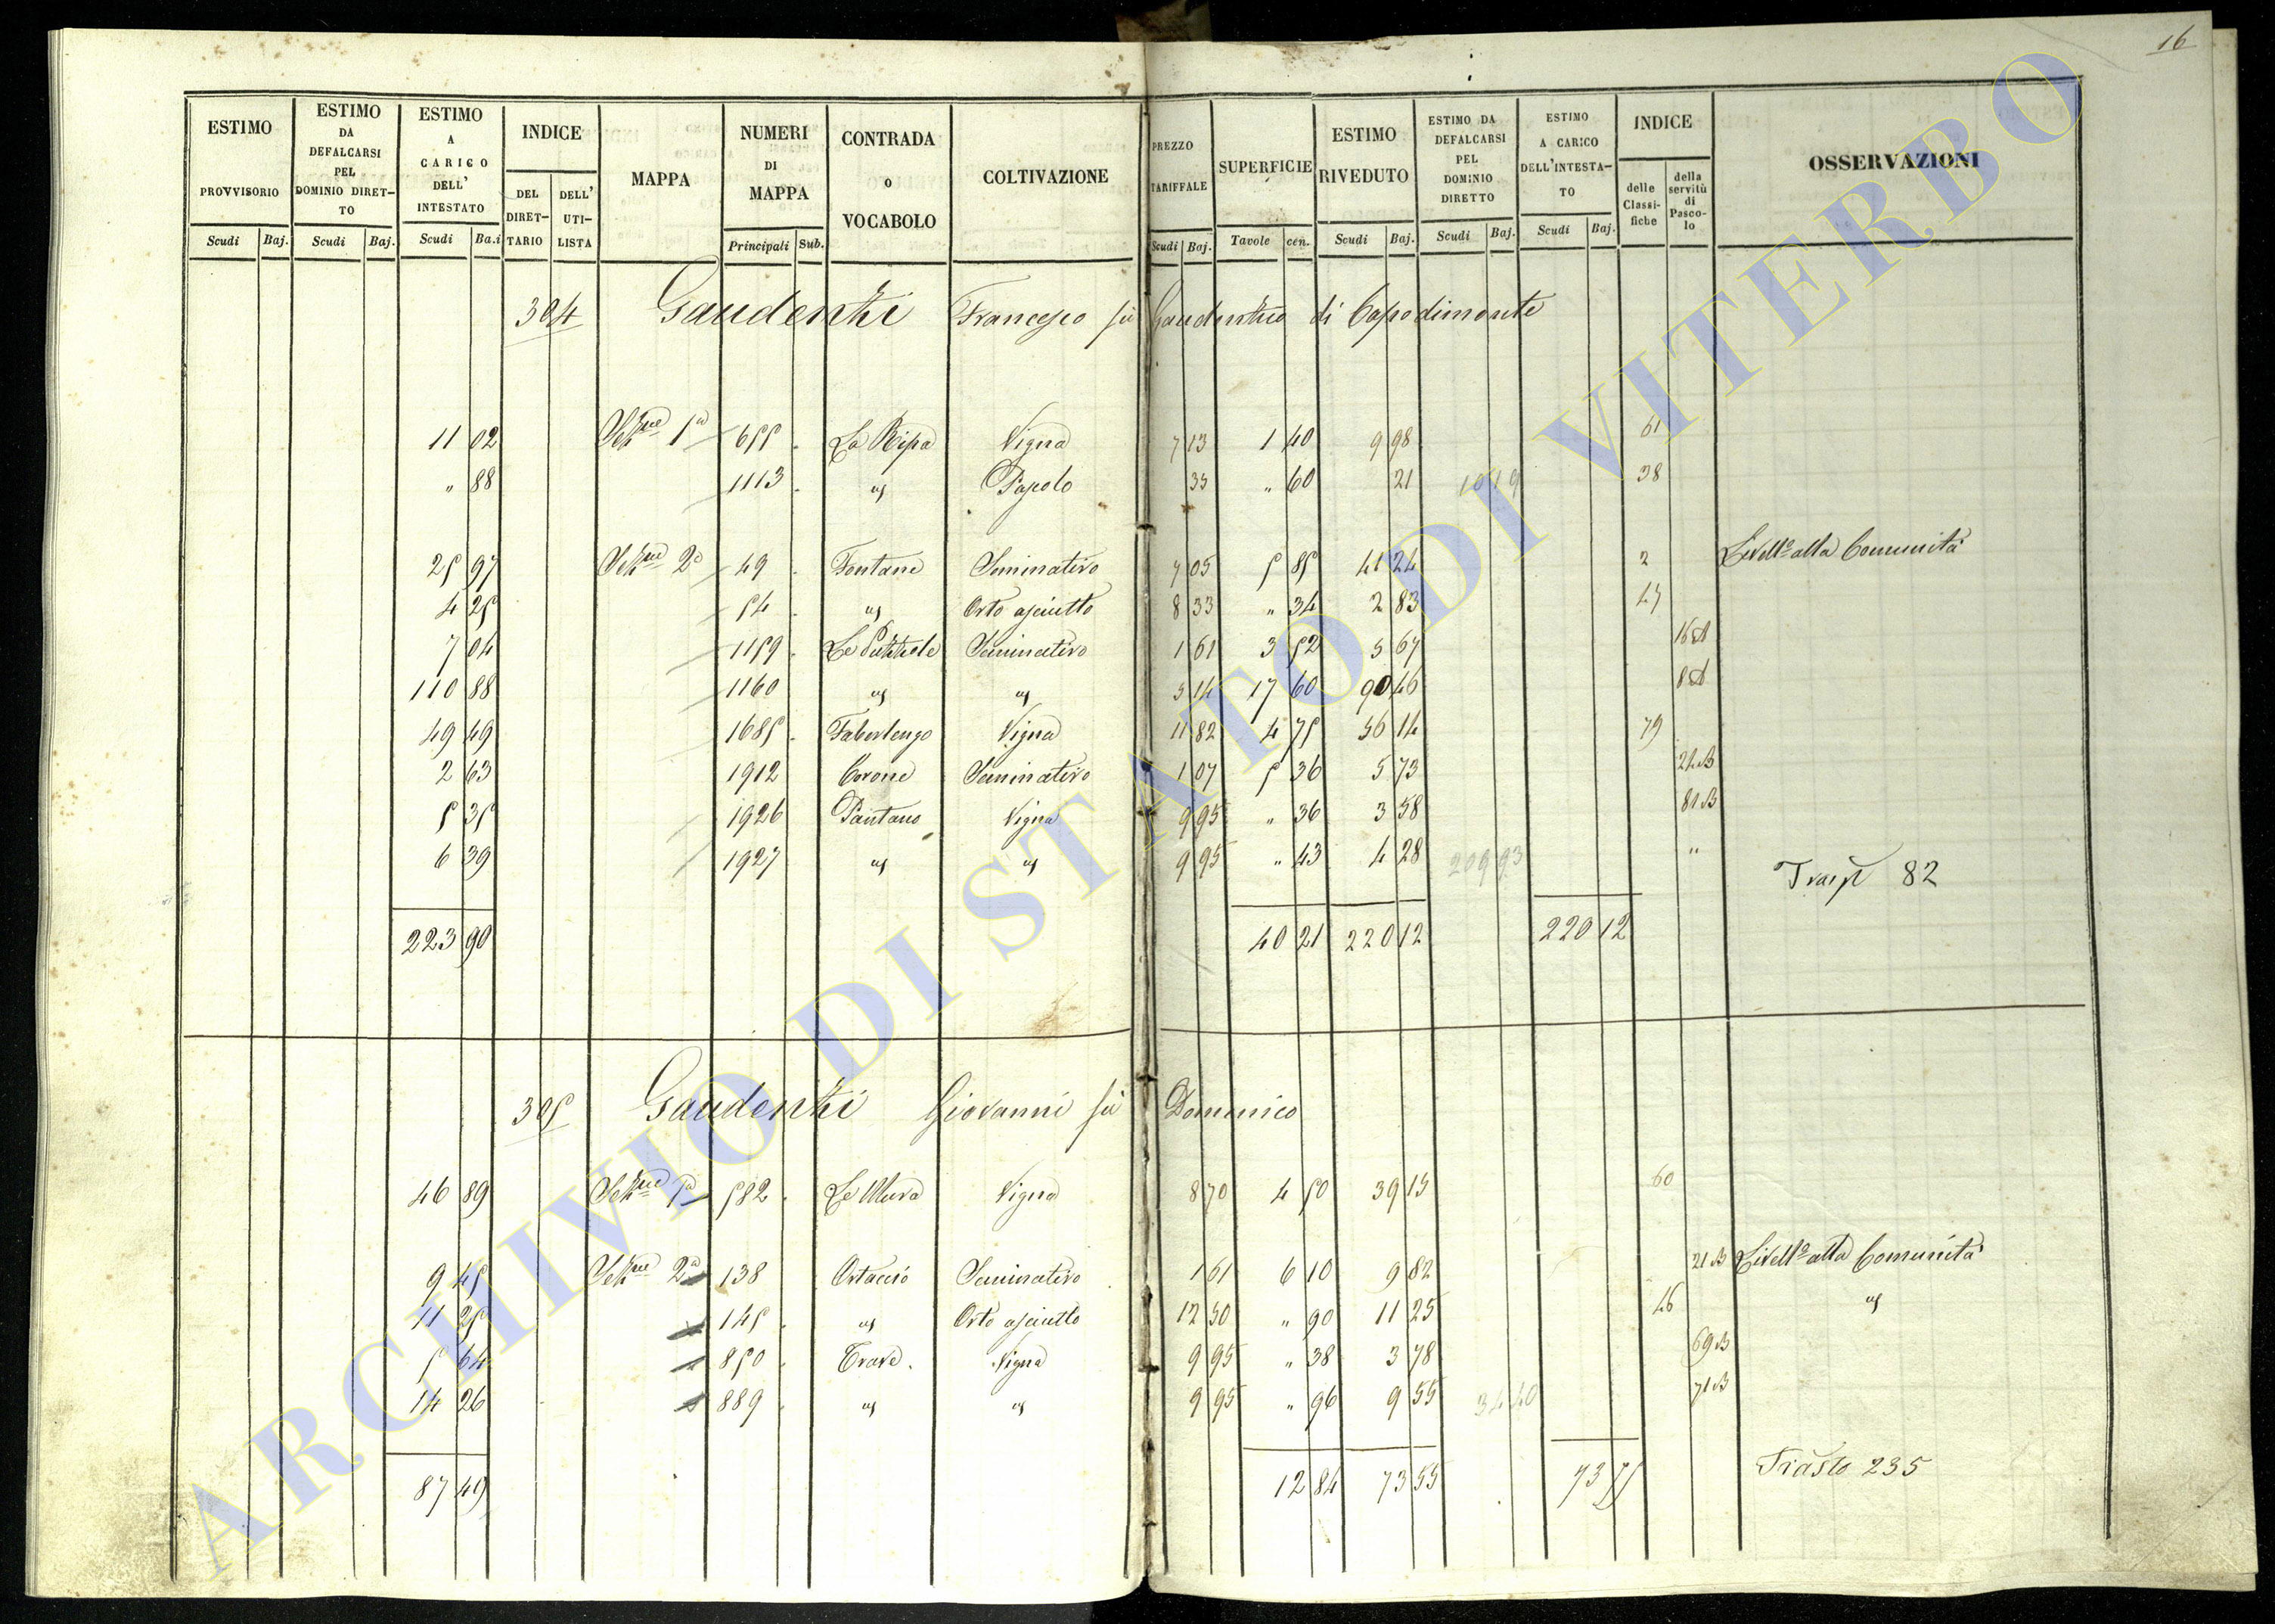 16
ESTIMO PROVVISORIO | ESTIMO DA DEFALCARSI PEL DOMINIO DIRETTO | ESTIMO A CARICO DELL' INTESTATO | INDICE | MAPPA | NUMERI DI MAPPA | CONTRADA O VOCABOLO | COLTIVAZIONE | PREZZO TARIFFALE | SUPERFICIE | ESTIMO RIVEDUTO | ESTIMO DA DEFALCARSI PEL DOMINIO DIRETTO | ESTIMO A CARICO DELL'INTESTATO | INDICE | OSSERVAZIONI
DEL DIRETTARIO | DELL' UTILISTA | delle Classifiche | della servitù di Pascolo
Scudi | Baj. | Scudi | Baj. | Scudi | Ba.i | Principali | Sub. | Scudi | Baj. | Tavole | cen. | Scudi | Baj. | Scudi | Baj. | Scudi | Baj.
304 Gaudenzi Francesco fu Gaudenzio di Capodimonte
11 02 Sezne 1a 655 La Ripa Vigna 7 13 1 40 9 98 61
" 88 1113 us Pascolo 35 " 60 21 10 19 38
25 97 Sezne 2a 49 Fontane Seminativo 7 05 5 85 41 24 2 Livello alla Comunità
4 25 54 us Orto asciutto 8 33 " 34 2 83 47
7 04 1159 Le Pozzole Seminativo 1 61 3 52 5 67 16 A
110 88 1160 us us 5 14 17 60 90 46 8 A
49 49 1685 Vigna 11 82 4 75 56 14 79
2 63 1912 Corone Seminativo 1 07 5 36 5 73 22 B
5 35 1926 Pantano Vigna 9 95 " 36 3 58 81 B
6 39 1927 us us 9 95 " 43 4 28 209 93 "
Trasp 82
223 90 40 21 220 12 220 12
305 Gaudenzi Giovanni fu Domenico
46 89 Sezne 1a 582 Le Mura Vigna 8 70 4 50 39 15 60
9 45 Sezne 2a 138 Ortaccio Seminativo 1 61 6 10 9 82 21 B Livello alla Comunità
11 25 145 us Orto asciutto 12 50 " 90 11 25 46 us
5 64 850 Trave. Vigna 9 95 " 38 3 78 69 B
14 26 889 us us 9 95 " 96 9 55 34 40 71 B
Trasto 235
87 49 12 84 73 55 73 55
ARCHIVIO DI STATO DI VITERBO